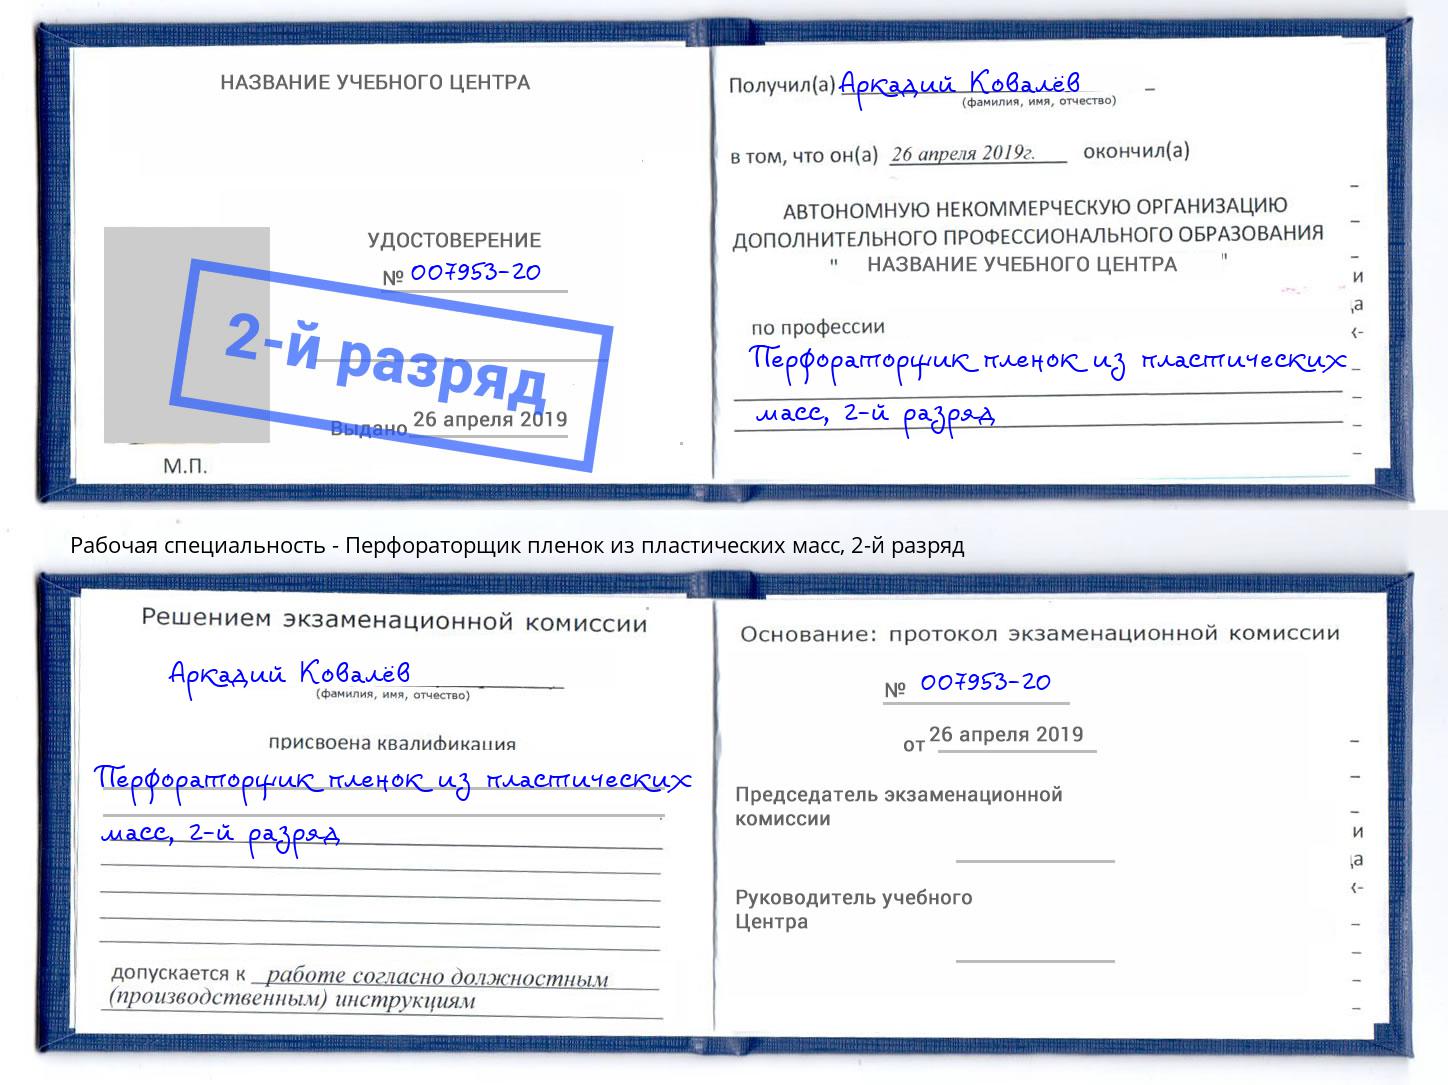 НАЗВАНИЕ УЧЕБНОГО ЦЕНТРА
УДОСТОВЕРЕНИЕ
№ 007953-20
2-й разряд
Выдано 26 апреля 2019
М.П.
Получил(а) Аркадий Ковалёв
(фамилия, имя, отчество)
в том, что он(а) 26 апреля 2019г. окончил(а)
АВТОНОМНУЮ НЕКОММЕРЧЕСКУЮ ОРГАНИЗАЦИЮ
ДОПОЛНИТЕЛЬНОГО ПРОФЕССИОНАЛЬНОГО ОБРАЗОВАНИЯ
" НАЗВАНИЕ УЧЕБНОГО ЦЕНТРА "
по профессии
Перфораторщик пленок из пластических
масс, 2-й разряд
Рабочая специальность - Перфораторщик пленок из пластических масс, 2-й разряд
Решением экзаменационной комиссии
Аркадий Ковалёв
(фамилия, имя, отчество)
присвоена квалификация
Перфораторщик пленок из пластических
масс, 2-й разряд
допускается к работе согласно должностным
(производственным) инструкциям
Основание: протокол экзаменационной комиссии
№ 007953-20
от 26 апреля 2019
Председатель экзаменационной
комиссии
Руководитель учебного
Центра